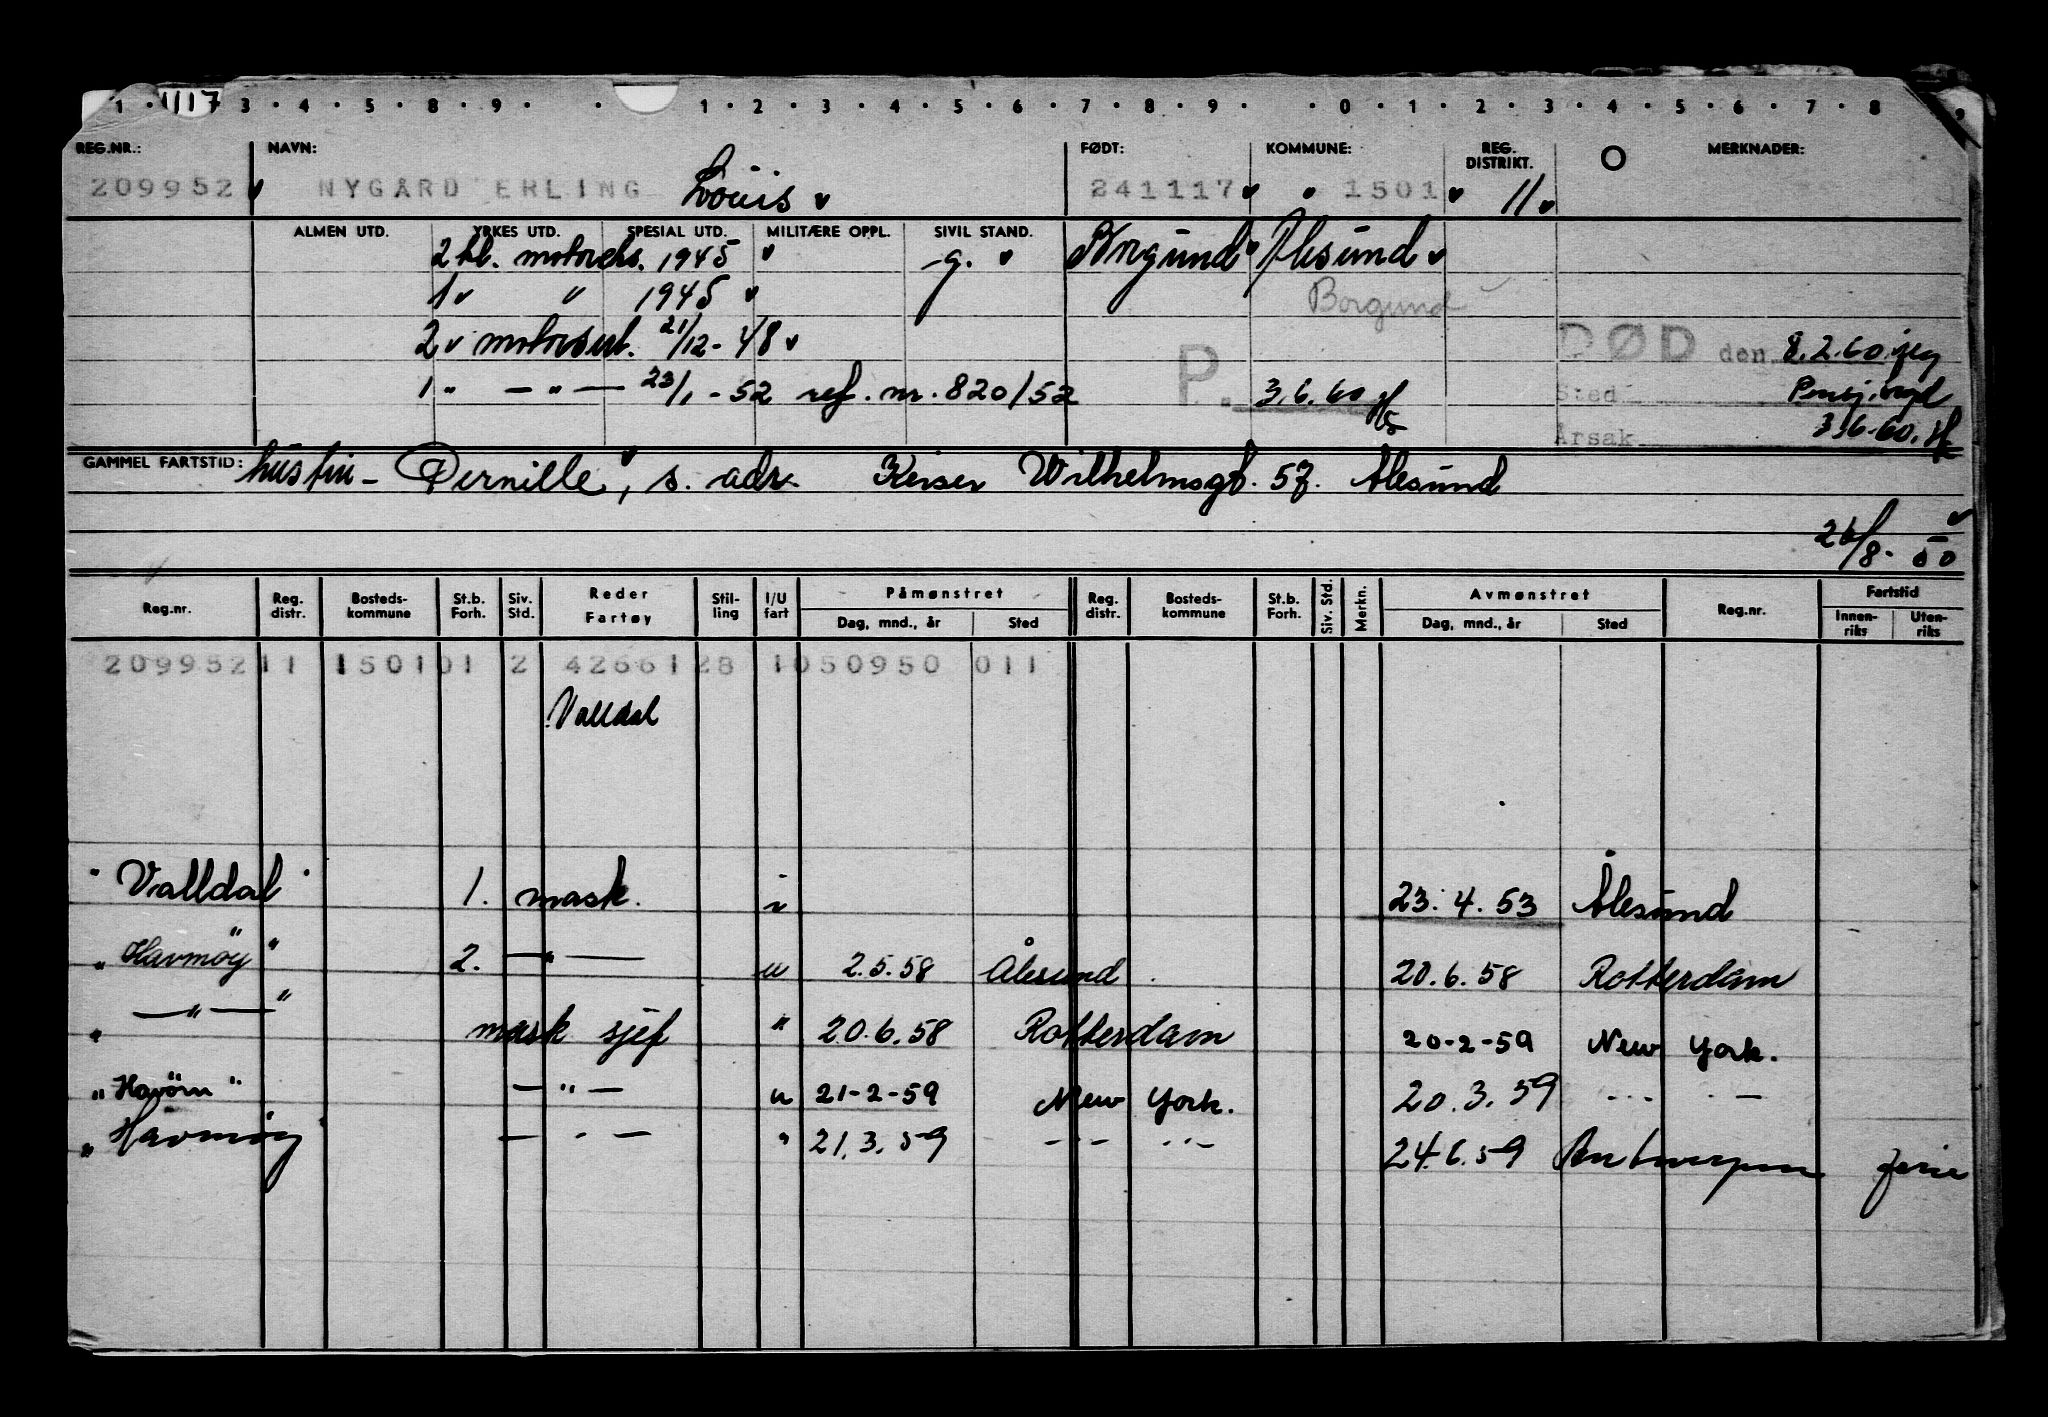 1 · 1117 3 · 4 · 5 · 8 · 9 · · 1 · 2 · 3 · 4 · 5 · 6 · 7 · 8 · 9 · · 0 · 1 · 2 · 3 · 4 · 5 · 6 · 7 · 8 · 9
REG.NR.: NAVN: FØDT: KOMMUNE: REG. DISTRIKT. O MERKNADER:
209952 NYGÅRD ERLING Louis 241117 1501 11
ALMEN UTD. YRKES UTD. SPESIAL UTD. MILITÆRE OPPL. SIVIL STAND.
2 kl. motorchs. 1945 g. Borgund Ålesund
1 " 1945 Borgund
2 " motorsert. 21/12 - 48 DØD den 8.2.60
1 " — " — 23/1 - 52 ref. nr. 820/52 P. 3.6.60 Sted
Årsak 3.6.60.
GAMMEL FARTSTID: hustru - Pernille, s. adr. Keiser Wilhelmsgt. 57. Ålesund
26/8 - 50
Reg.nr. Reg. distr. Bosteds-kommune St.b. Forh. Siv. Std. Reder Fartøy Stil-ling I/U fart Påmønstret Dag, mnd., år Sted Reg. distr. Bosteds-kommune St.b. Forh. Siv. Std. Merkn. Avmønstret Dag, mnd., år Sted Reg.nr. Fartstid Innen-riks Uten-riks
209952 11 1501 01 2 4266128 1050950 011
Valldal
" Valldal " 1. mask. i 23.4.53 Ålesund
" Havmøy " 2. — " — u 2.5.58 Ålesund 20.6.58 Rotterdam
" — " — " mask sjef " 20.6.58 Rotterdam 20-2-59 New York.
" Havørn " — " — u 21-2-59 New York. 20.3.59 — " —
" Havmøy — " — " 21.3.59 — " — 24.6.59 Antwerpen ferie